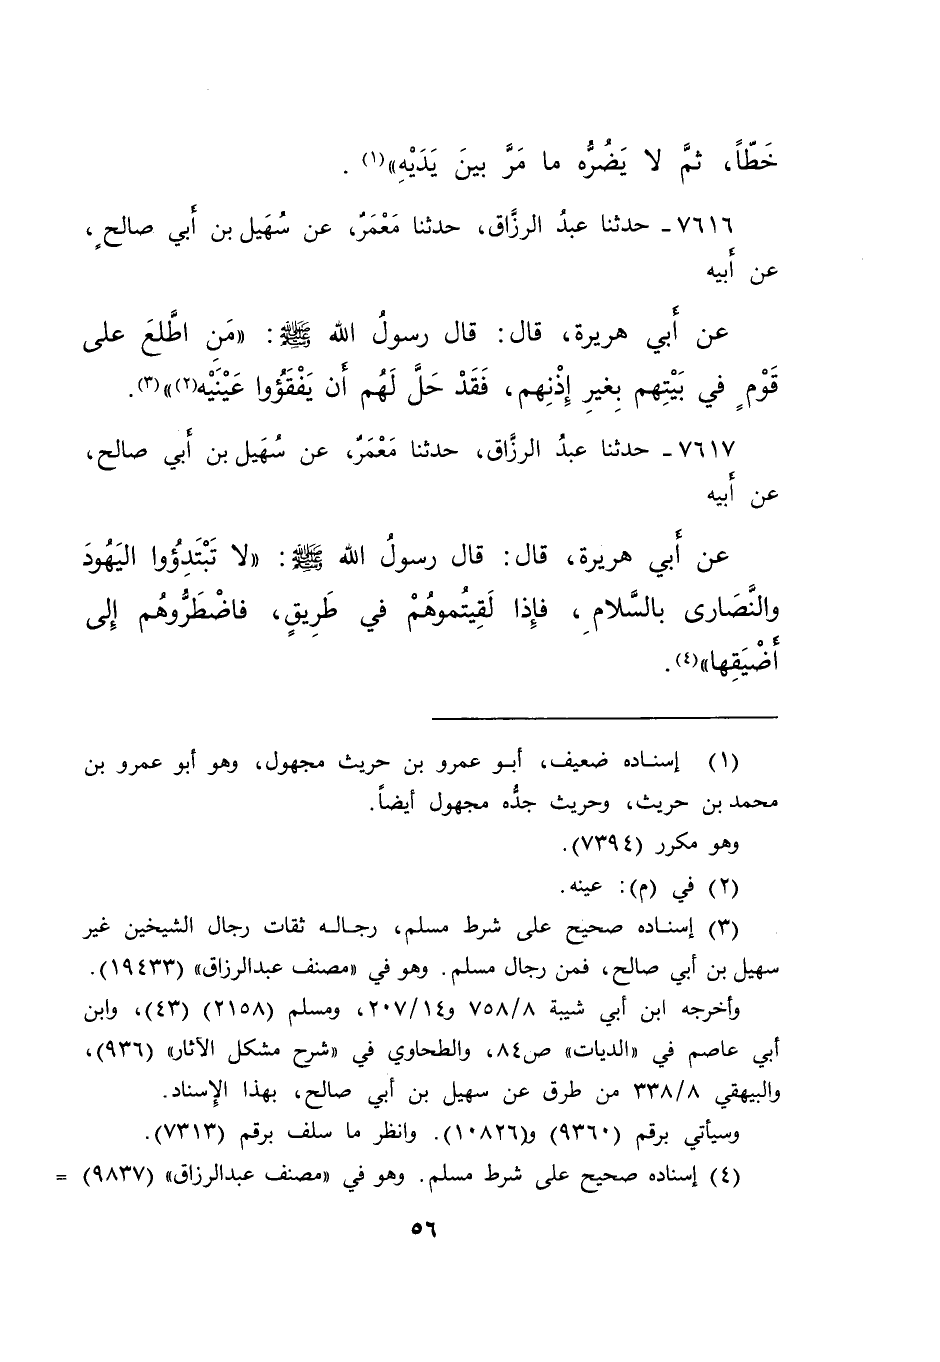 خَطّاً، ثمَّ لا يَضُرُّه ما مَرَّ بينَ يَدَيْهِ»(١) .
٧٦١٦ـ حدثنا عبدُ الرزَّاق، حدثنا مَعْمَرٌ، عن سُهَيل بن أَبي صالحٍ،
عن أَبيه
عن أَبي هريرة، قال: قال رسولُ الله ﷺ: «مَنِ اطَّلَعَ على
قَوْمٍ في بَيْتِهم بِغيرِ إِذْنِهم، فَقَدْ حَلَّ لَهُم أَن يَفْقَؤُوا عَيْنَيْه(٢)»(٣).
٧٦١٧ـ حدثنا عبدُ الرزَّاق، حدثنا مَعْمَرٌ، عن سُهَيل بن أَبي صالح،
عن أَبيه
عن أَبي هريرة، قال: قال رسولُ الله ﷺ: «لا تَبْتَدِؤُوا اليَهُودَ
والنَّصَارى بالسَّلامِ، فإِذا لَقِيتُموهُمْ في طَرِيقٍ، فاضْطَرُّوهُم إِلى
أَضْيَقِها»(٤).
(١) إسناده ضعيف، أبو عمرو بن حريث مجهول، وهو أبو عمرو بن
محمد بن حريث، وحريث جدُّه مجهول أيضاً.
وهو مكرر (٧٣٩٤).
(٢) في (م): عينه.
(٣) إسناده صحيح على شرط مسلم، رجاله ثقات رجال الشيخين غير
سهيل بن أبي صالح، فمن رجال مسلم. وهو في «مصنف عبدالرزاق» (١٩٤٣٣).
وأخرجه ابن أبي شيبة ٧٥٨/٨ و٢٠٧/١٤، ومسلم (٢١٥٨) (٤٣)، وابن
أبي عاصم في «الديات» ص٨٤، والطحاوي في «شرح مشكل الآثار» (٩٣٦)،
والبيهقي ٣٣٨/٨ من طرق عن سهيل بن أبي صالح، بهذا الإسناد.
وسيأتي برقم (٩٣٦٠) و(١٠٨٢٦). وانظر ما سلف برقم (٧٣١٣).
(٤) إسناده صحيح على شرط مسلم. وهو في «مصنف عبدالرزاق» (٩٨٣٧) =
٥٦